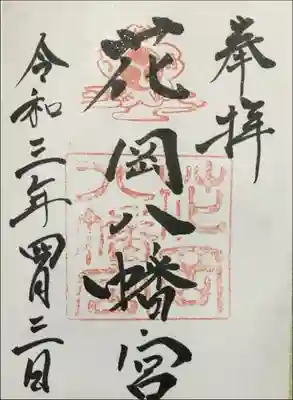 奉拝
花岡八幡宮
令和三年四月三日